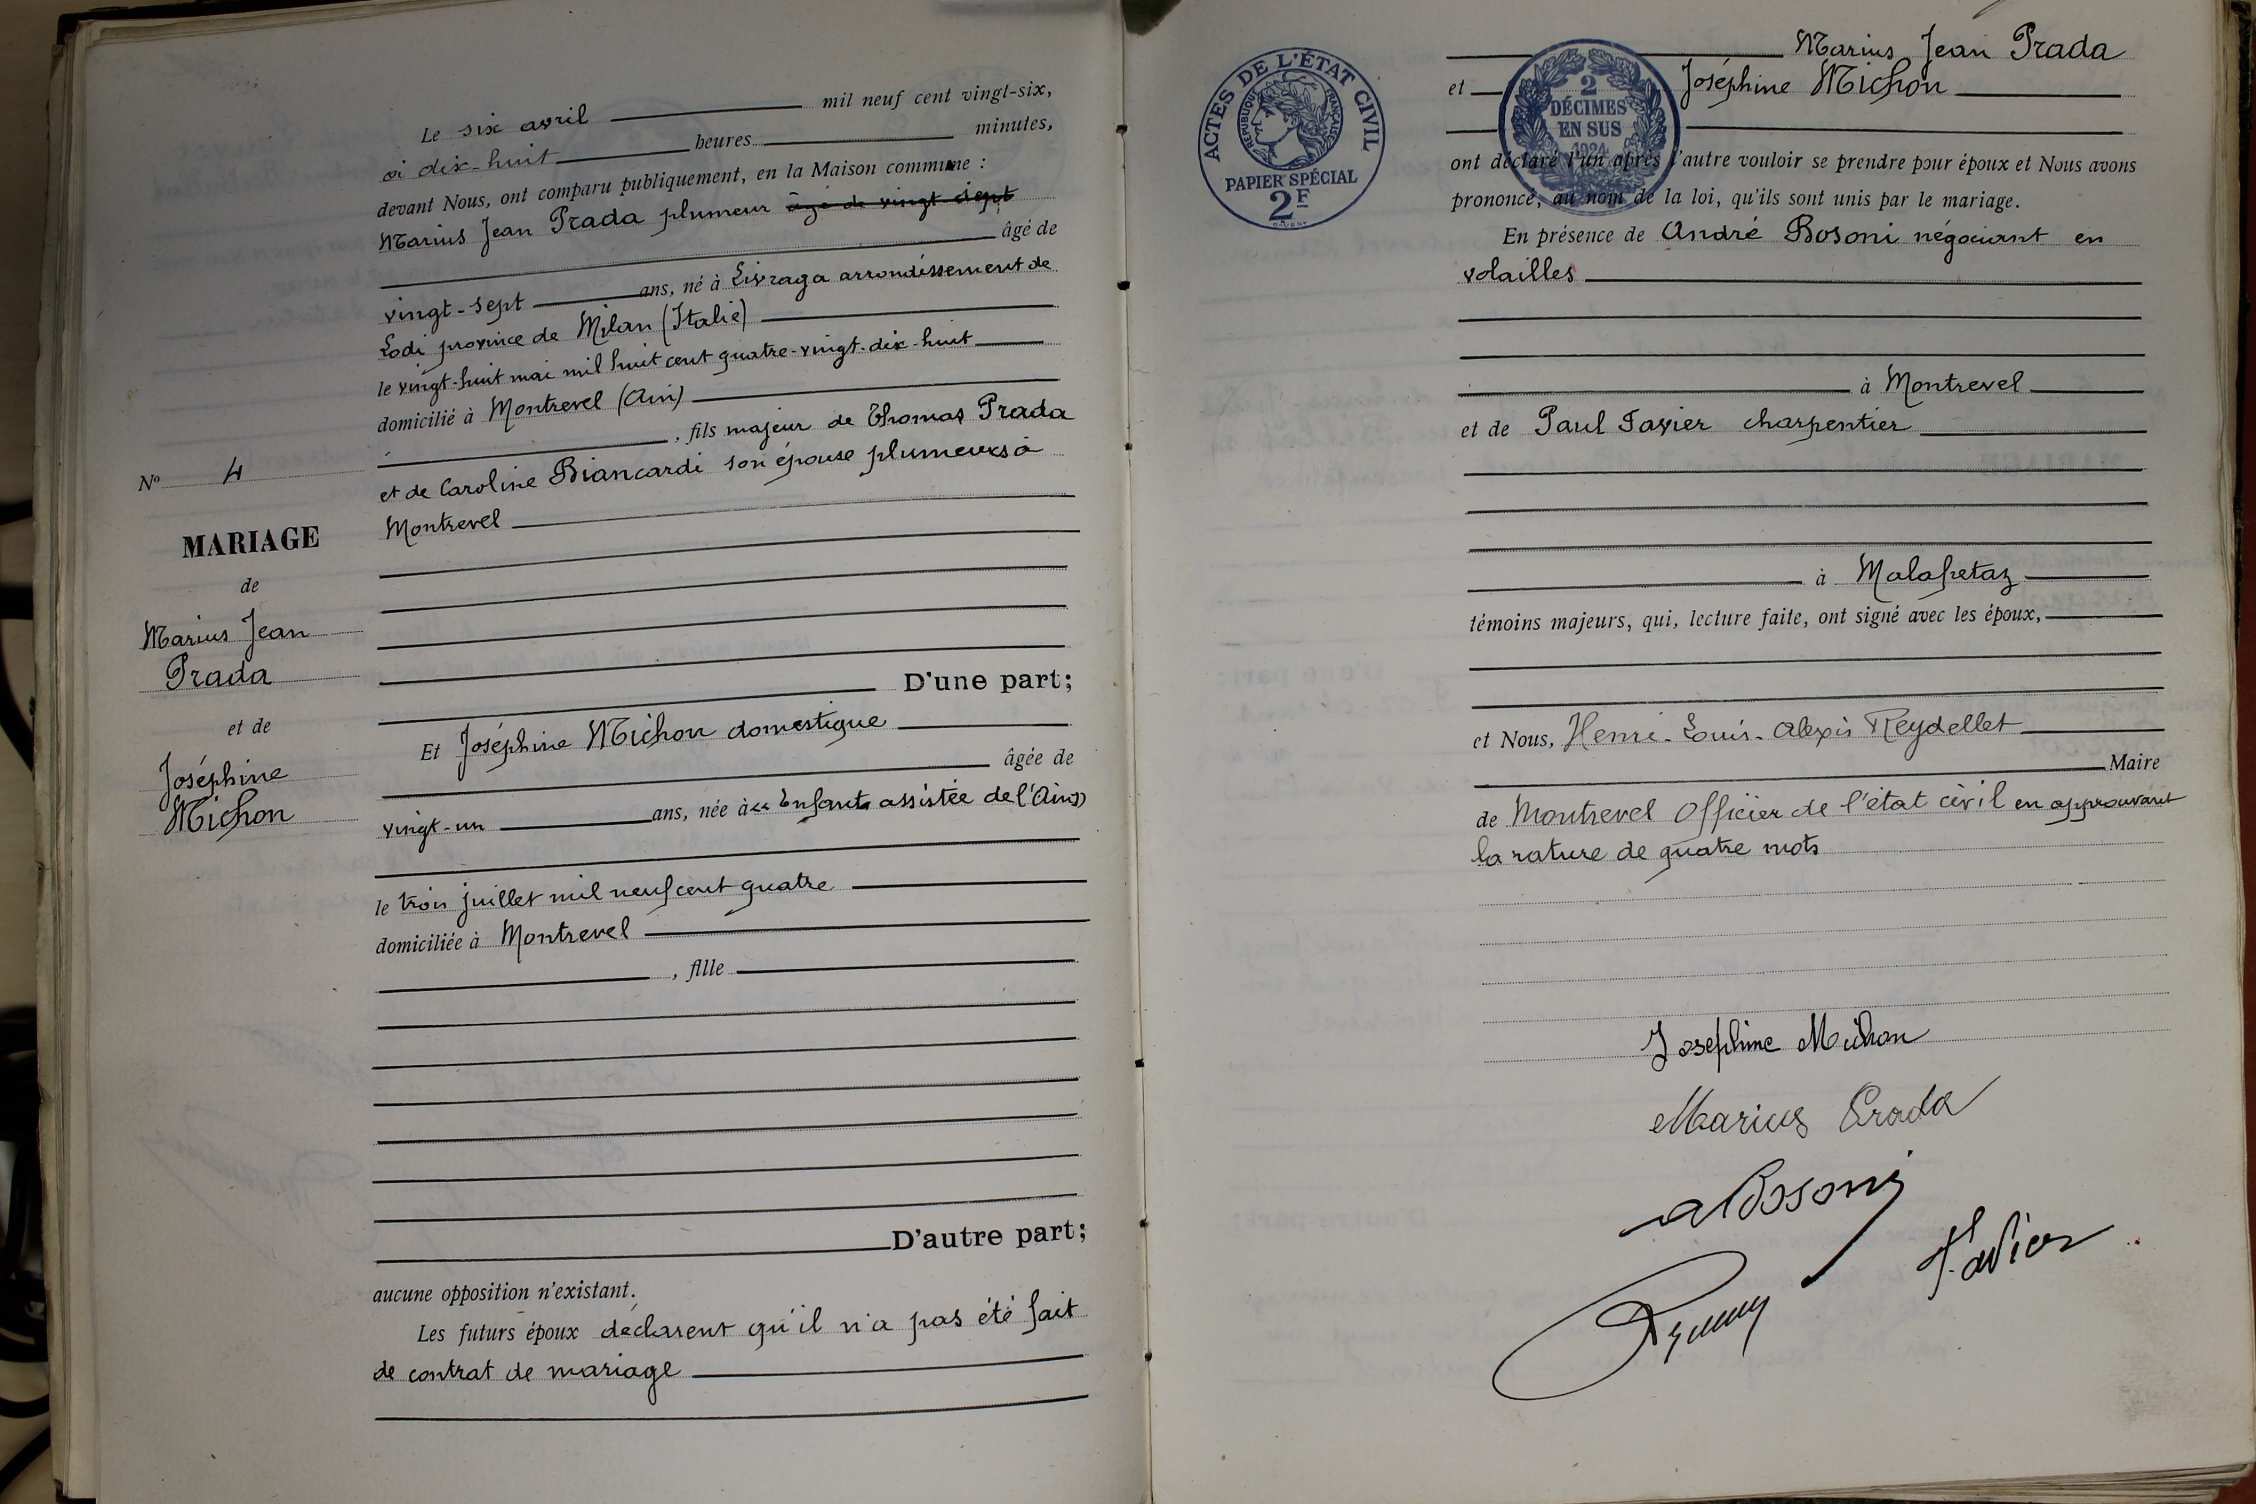 Le six avril mil neuf cent vingt-six,
à dix-huit heures minutes,
devant Nous, ont comparu publiquement, en la Maison commune :
Marius Jean Prada plumeur âgé de vingt-sept
âgé de
vingt-sept ans, né à Livraga arrondissement de
Lodi province de Milan (Italie)
le vingt-huit mai mil huit cent quatre-vingt-dix-huit
domicilié à Montrevel (Ain)
, fils majeur de Thomas Prada
et de Caroline Biancardi son épouse plumeurs à
Montrevel
D'une part;
Et Joséphine Michon domestique
âgée de
vingt-un ans, née à «« Enfant assistée de l'Ain»
le trois juillet mil neuf cent quatre
domiciliée à Montrevel
, fille
D'autre part;
aucune opposition n'existant.
Les futurs époux déclarent qu'il n'a pas été fait
de contrat de mariage
Nº 4
MARIAGE
de
Marius Jean
Prada
et de
Joséphine
Michon
ACTES DE L'ÉTAT CIVIL
RÉPUBLIQUE FRANÇAISE
PAPIER SPÉCIAL
2F
2
DÉCIMES
EN SUS
1924
Marius Jean Prada
et Joséphine Michon
ont déclaré l'un après l'autre vouloir se prendre pour époux et Nous avons
prononcé, au nom de la loi, qu'ils sont unis par le mariage.
En présence de André Bosoni négociant en
volailles
à Montrevel
et de Paul Favier charpentier
à Malafretaz
témoins majeurs, qui, lecture faite, ont signé avec les époux,
et Nous, Henri-Louis-Alexis Reydellet
Maire
de Montrevel Officier de l'état civil en approuvant
la rature de quatre mots
Josephine Michon
Marius Prada
A Bosoni
Favier